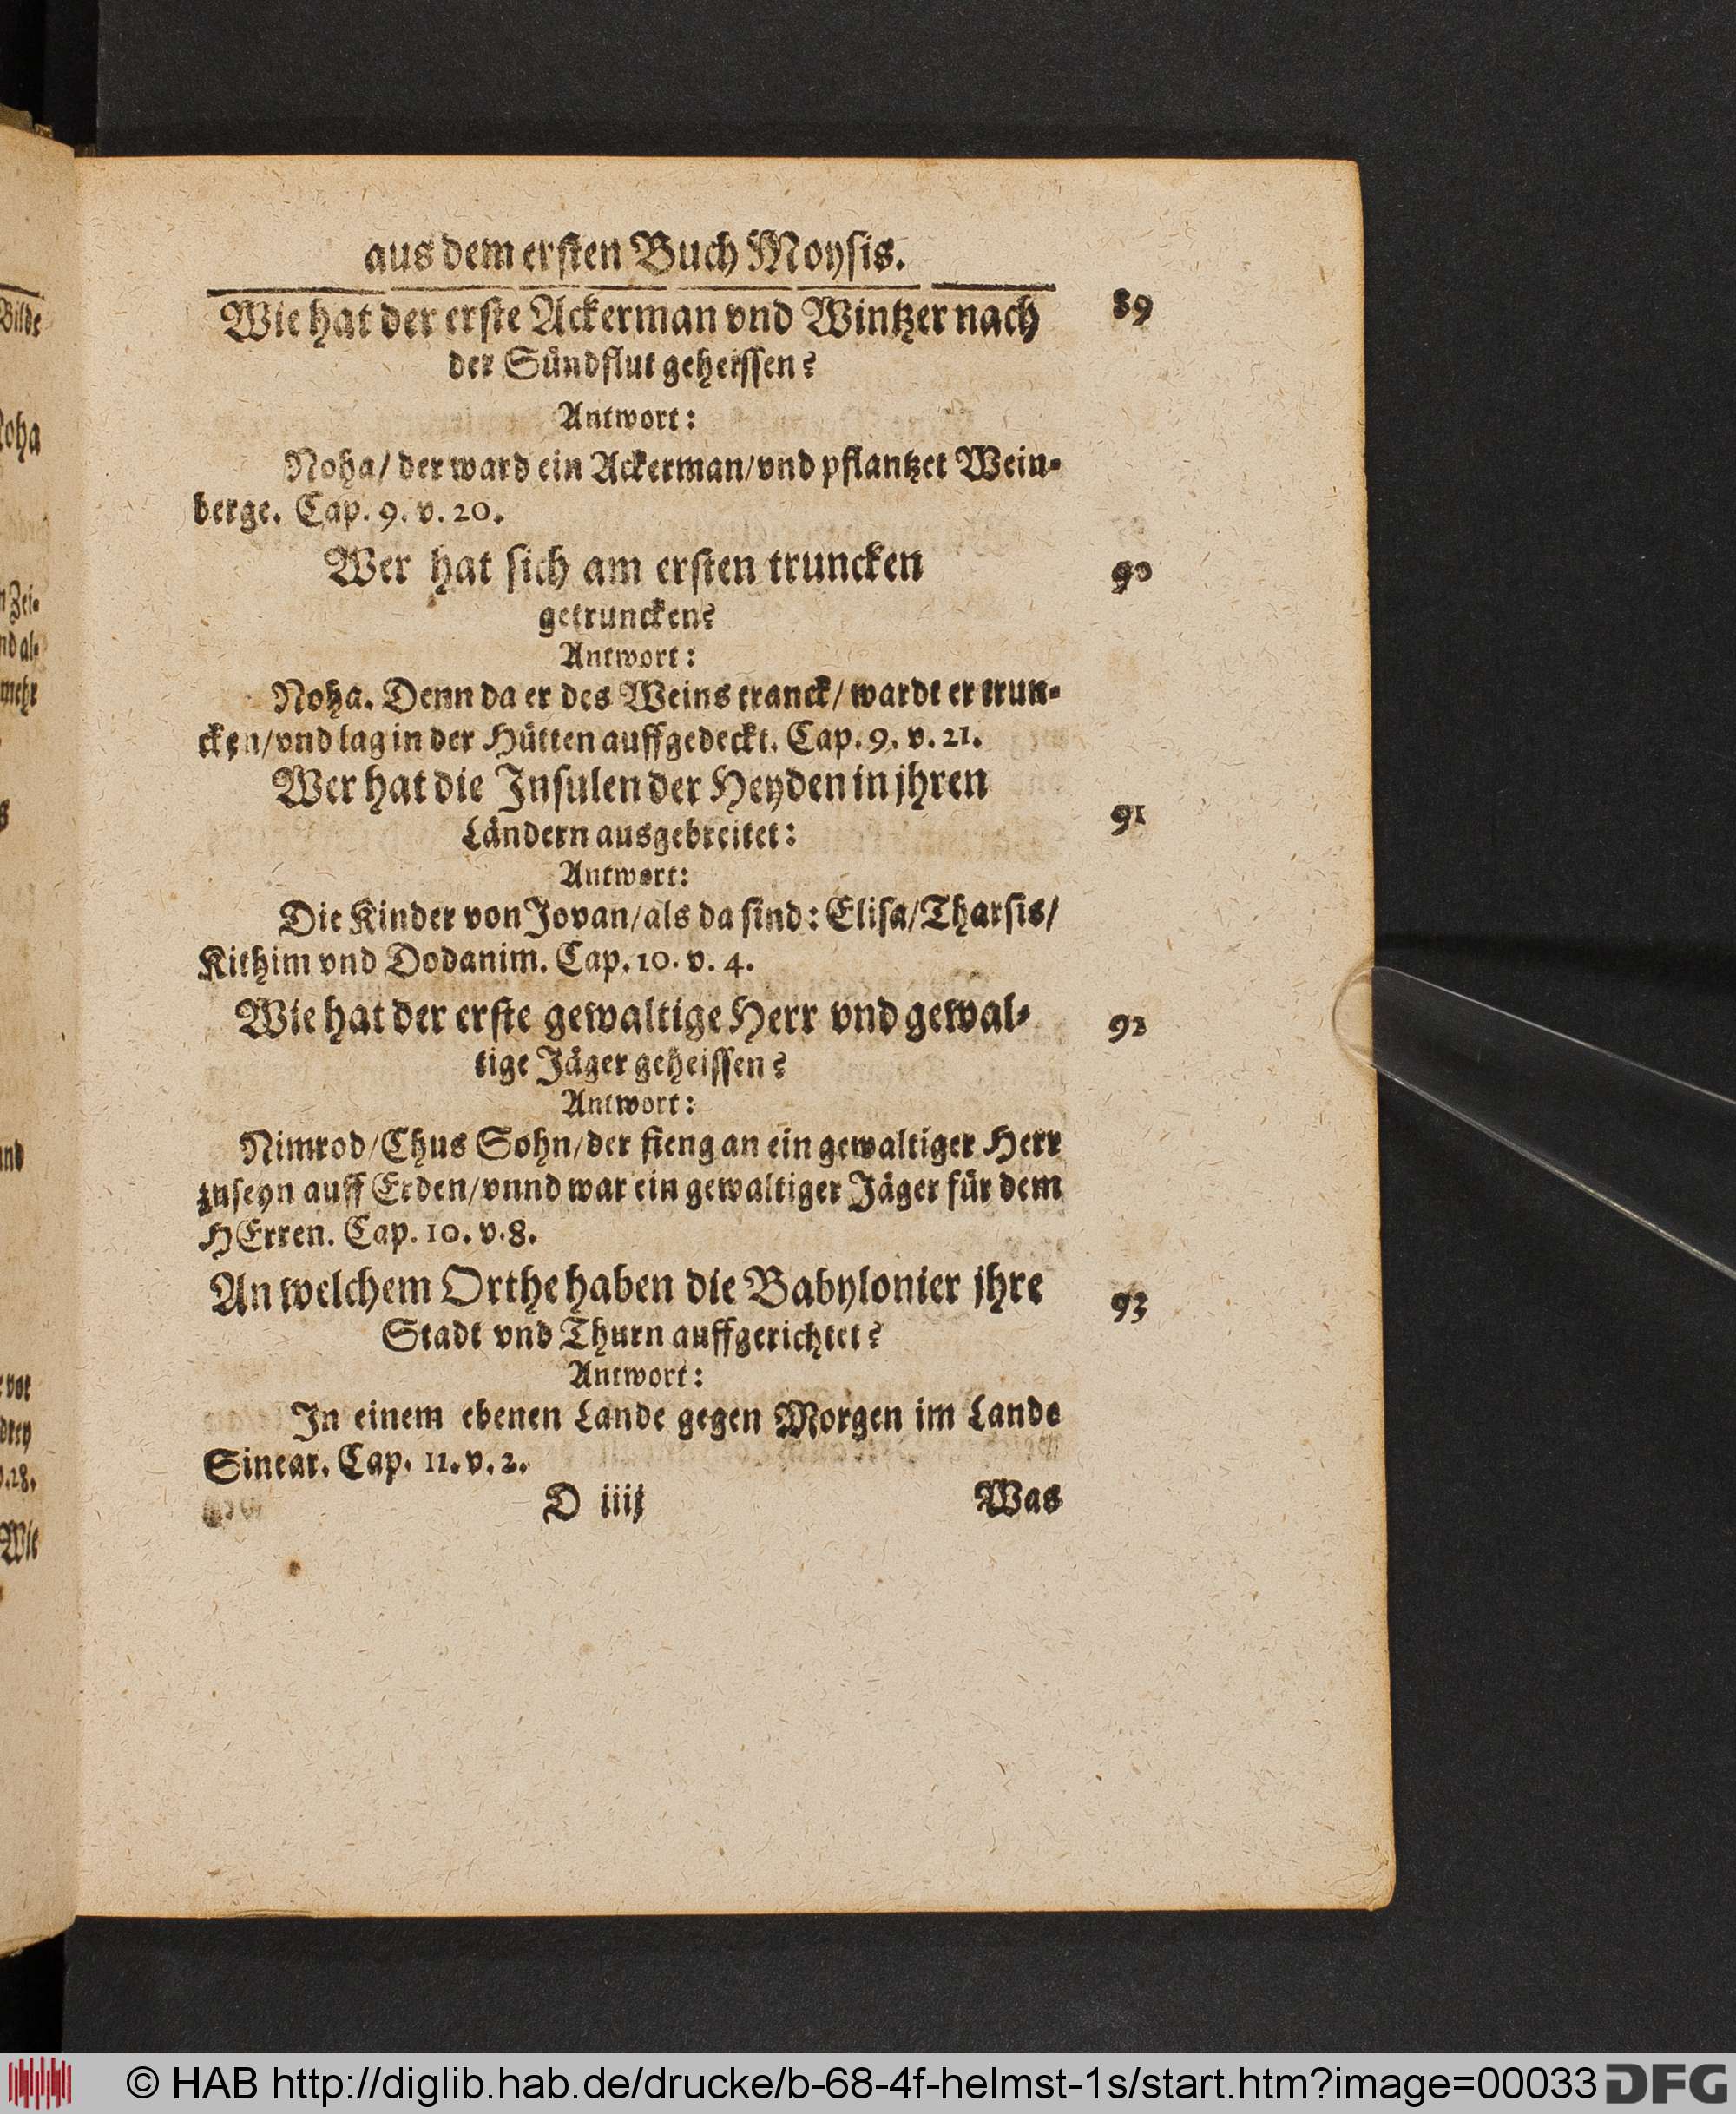 aus dem ersten Buch Moysis.
Wie hat der erste Ackerman vnd Wintzer nach
89
der Sündflut geheissen?
Antwort:
Noha/ der ward ein Ackerman/vnd pflantzet Wein-
berge. Cap. 9. v. 20.
Wer hat sich am ersten truncken
90
getruncken?
Antwort:
Noha. Denn da er des Weins tranck/ wardt er trun-
cken/vnd lag in der Hütten auffgedeckt. Cap. 9. v. 21.
Wer hat die Insulen der Heyden in jhren
91
Ländern ausgebreitet:
Antwort:
Die Kinder von Jovan/als da sind: Elisa/Tharsis/
Kithim vnd Dodanim. Cap. 10. v. 4.
Wie hat der erste gewaltige Herr vnd gewal-
92
tige Jäger geheissen?
Antwort:
Nimrod/Chus Sohn/der fieng an ein gewaltiger Herr
zuseyn auff Erden/vnnd war ein gewaltiger Jäger für dem
HErren. Cap. 10. v. 8.
An welchem Orthe haben die Babylonier jhre
93
Stadt vnd Thurn auffgerichtet?
Antwort:
In einem ebenen Lande gegen Morgen im Lande
Sinear. Cap. 11. v. 2.
D iiij Was
Bilde
Noha
Zei-
nd al-
mehr
vor
drey
v. 28.
Wie
© HAB http://diglib.hab.de/drucke/b-68-4f-helmst-1s/start.htm?image=00033 DFG